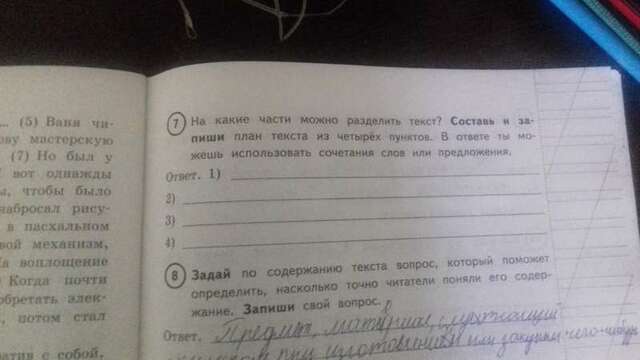 ... (5) Ваня чи-
ову мастерскую
(7) Но был у
вот однажды
ы, чтобы было
набросал рису-
в пасхальном
вой механизм,
а воплощение
Когда почти
обретать элек-
, потом стал
ратив с собой,
7 На какие части можно разделить текст? Составь и за-
пиши план текста из четырёх пунктов. В ответе ты мо-
жешь использовать сочетания слов или предложения.
Ответ. 1)
2)
3)
4)
8 Задай по содержанию текста вопрос, который поможет
определить, насколько точно читатели поняли его содер-
жание. Запиши свой вопрос.
Ответ. Предмет, материал, служащий
при изготовлении или